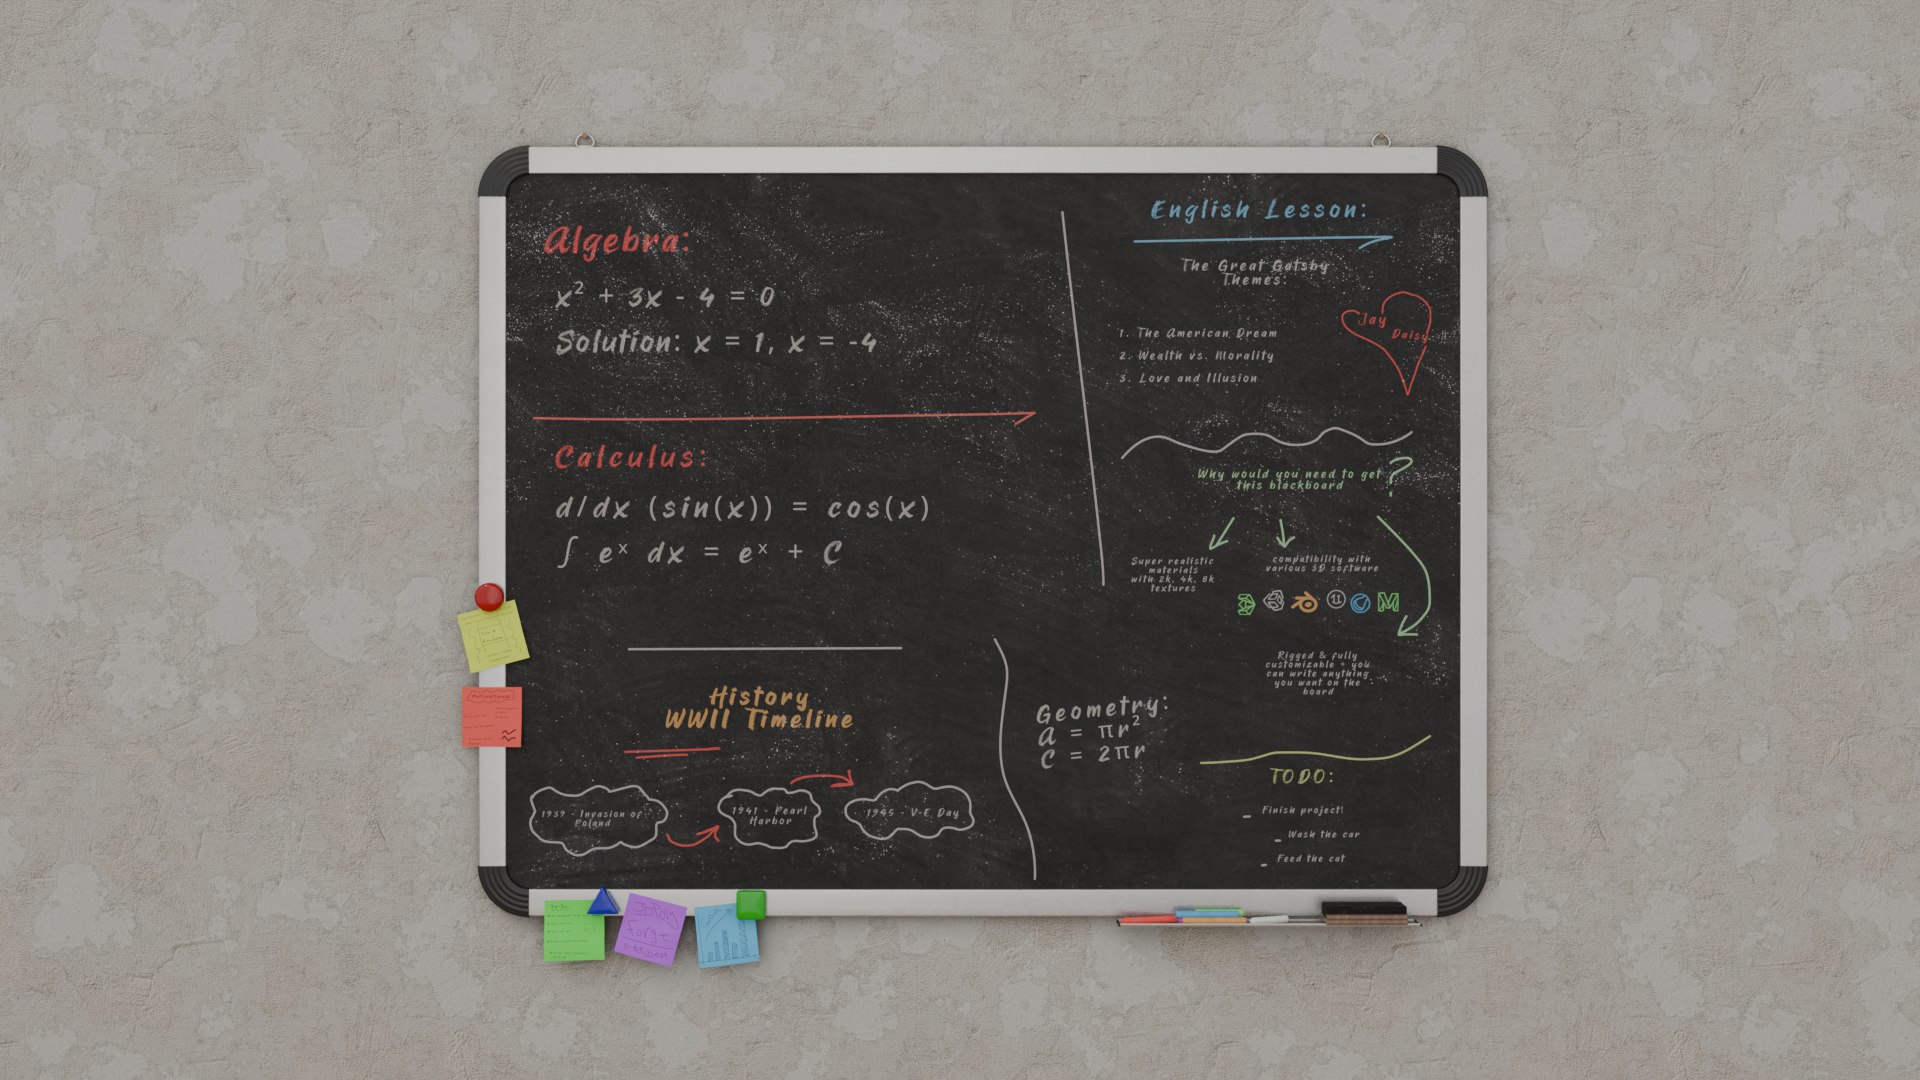 Algebra:
x² + 3x - 4 = 0
Solution: x = 1, x = -4
Calculus:
d/dx (sin(x)) = cos(x)
∫ eˣ dx = eˣ + C
History
WWII Timeline
1939 - Invasion of
Poland
1941 - Pearl
Harbor
1945 - V-E Day
Geometry:
A = πr²
C = 2πr
English Lesson:
The Great Gatsby
Themes:
1. The American Dream
2. Wealth vs. Morality
3. Love and Illusion
Jay
Daisy
Why would you need to get
this blackboard ?
Super realistic
materials
with 2k, 4k, 8k
textures
compatibility with
various 3D software
Rigged & fully
customizable + you
can write anything
you want on the
board
TODO:
- Finish project!
- Wash the car
- Feed the cat
Motivational
To-Do:
3DPoly
Forge